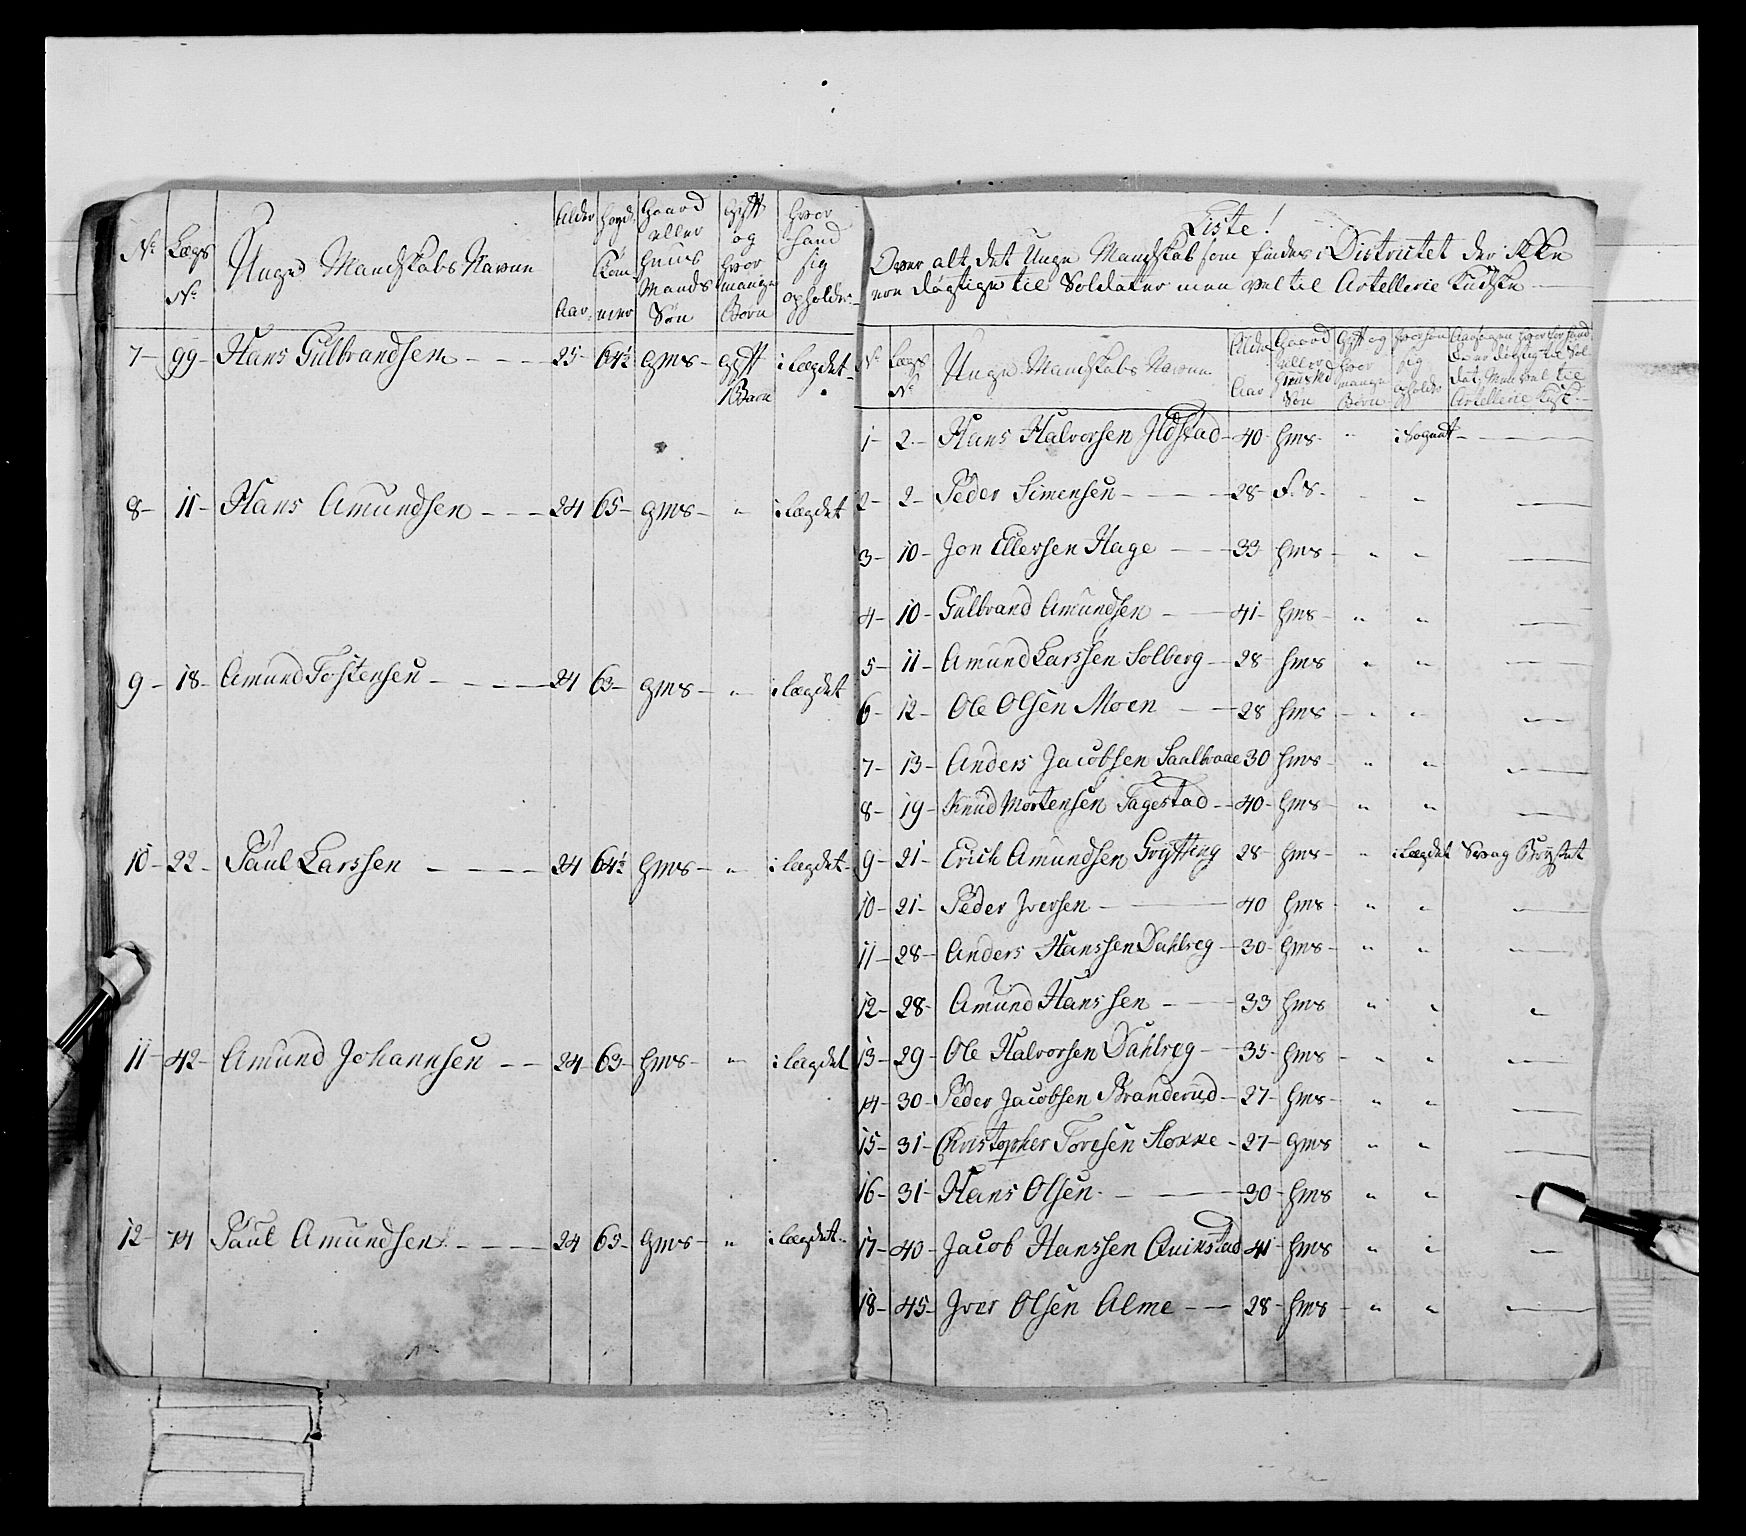 N.º Lægs N.º Unge Mandskabs Navne Alder Aar. Høyde Tom- mer Gaard eller Huus Mands Søn Gift og hvor mange Børn Hvor hand sig opholder
7 - 99 - Hans Gulbrandsen - - - 25 - 64½ gms - gift 1 Barn i Lægdet
8 - 11 - Hans Amundsen - - - 24 65 - gms - " i Lægdet
9 - 18 - Amund Tostensen - - - 24 63 - gms - " i Lægdet
10 - 22 - Paul Larssen - - - 24 64½ hms - " i Lægdet
11 - 42 - Amund Johannsen - - 24 63 - hms - " i Lægdet
12 - 74 Paul Amundsen - - - 24 65 - gms - " i Lægdet
Liste!
Over alt det Unge Mandskab som findes i Districtet der ikke
ere dögtige til Soldater men vel til Artellerie Kudske
N.º Lægs N.º Unge Mandskabs Navne Alder Aar Gaard eller Huus Md Søn Gift og hvor mange Børn hvor han sig opholder Aarsagen hvorfor hand ei er dögtig til Sol- dat, Men vel til Artellerie Kusk
1 - 2 - Hans Halvorsen Ildstad - 40 - hms - " i Sognet - —
2 - 2 - Peder Simensen - - - 28 - F. S. - " —
3 - 10 - Jon Ellersen Hage - - 33 hms - " " —
4 - 10 - Gulbrand Amundsen - - 41 - hms - " " —
5 - 11 - Amund Larssen Solberg - 28 - hms " " —
6 - 12 - Ole Olsen Moen - - 28 hms - " " —
7 - 13 - Anders Jacobsen Saalbraae 30 hms - " " —
8 - 19 - Knud Mortensen Fagestad - 40 - hms - " " —
9 - 21 - Erich Amundsen Grytting 28 - hms - " i Lægdet Svag Brystet
10 - 21 - Peder Iversen - — 40 hms - " " —
11 - 28 - Anders Hanssen Dahlreg - 30 - hms - " " —
12 - 28 - Amund Hanssen - — 33 hms " " "
13 - 29 - Ole Halvorsen Dahlreg - 35 - hms - " " —
14 - 30 - Peder Jacobsen Branderud - 27 - hms - " " —
15 - 31 - Christopher Toresen Stokke - 27 - gms " " —
16 - 31 - Hans Olsen - — 30 - hms " " —
17 - 40 - Jacob Hanssen Quikstad 41 - hms " " —
18 - 45 - Iver Olsen Alme - - 28 - hms - " " —